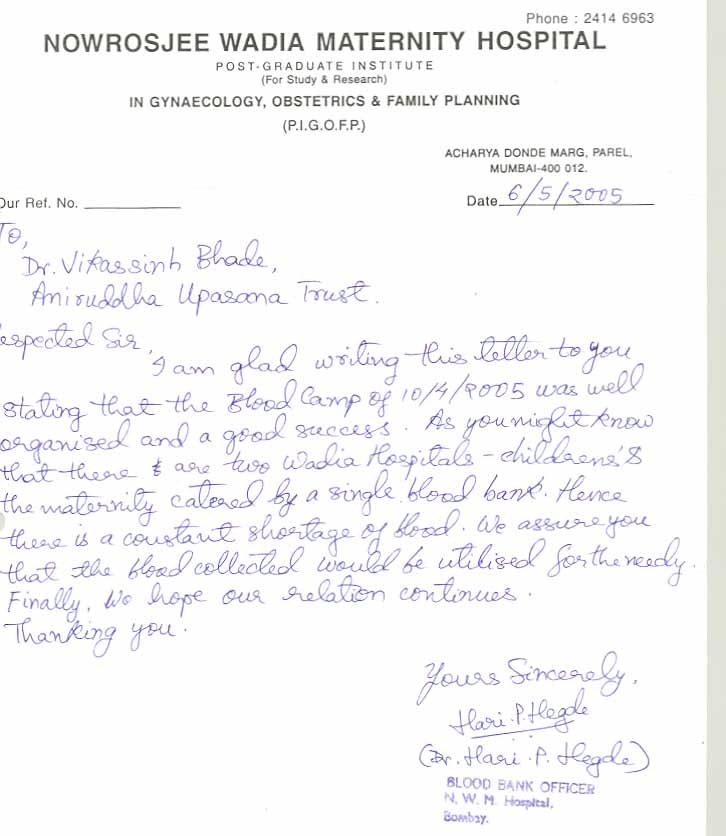 Phone : 2414 6963
NOWROSJEE WADIA MATERNITY HOSPITAL
POST-GRADUATE INSTITUTE
(For Study & Research)
IN GYNAECOLOGY, OBSTETRICS & FAMILY PLANNING
(P.I.G.O.F.P.)
ACHARYA DONDE MARG, PAREL,
MUMBAI-400 012.
Our Ref. No.
Date 6/5/2005
To,
Dr. Vikassinh Bhade,
Aniruddha Upasana Trust.
espected Sir,
I am glad writing this letter to you
stating that the Blood Camp of 10/4/2005 was well
organised and a good success. As you might know
that there are two Wadia Hospitals - childrens &
the maternity catered by a single blood bank. Hence
there is a constant shortage of blood. We assure you
that the blood collected would be utilised for the needy.
Finally, We hope our relation continues.
Thanking you.
Yours Sincerely,
Hari.P.Hegde
(Dr. Hari. P. Hegde)
BLOOD BANK OFFICER
N. W. M. Hospital,
Bombay.